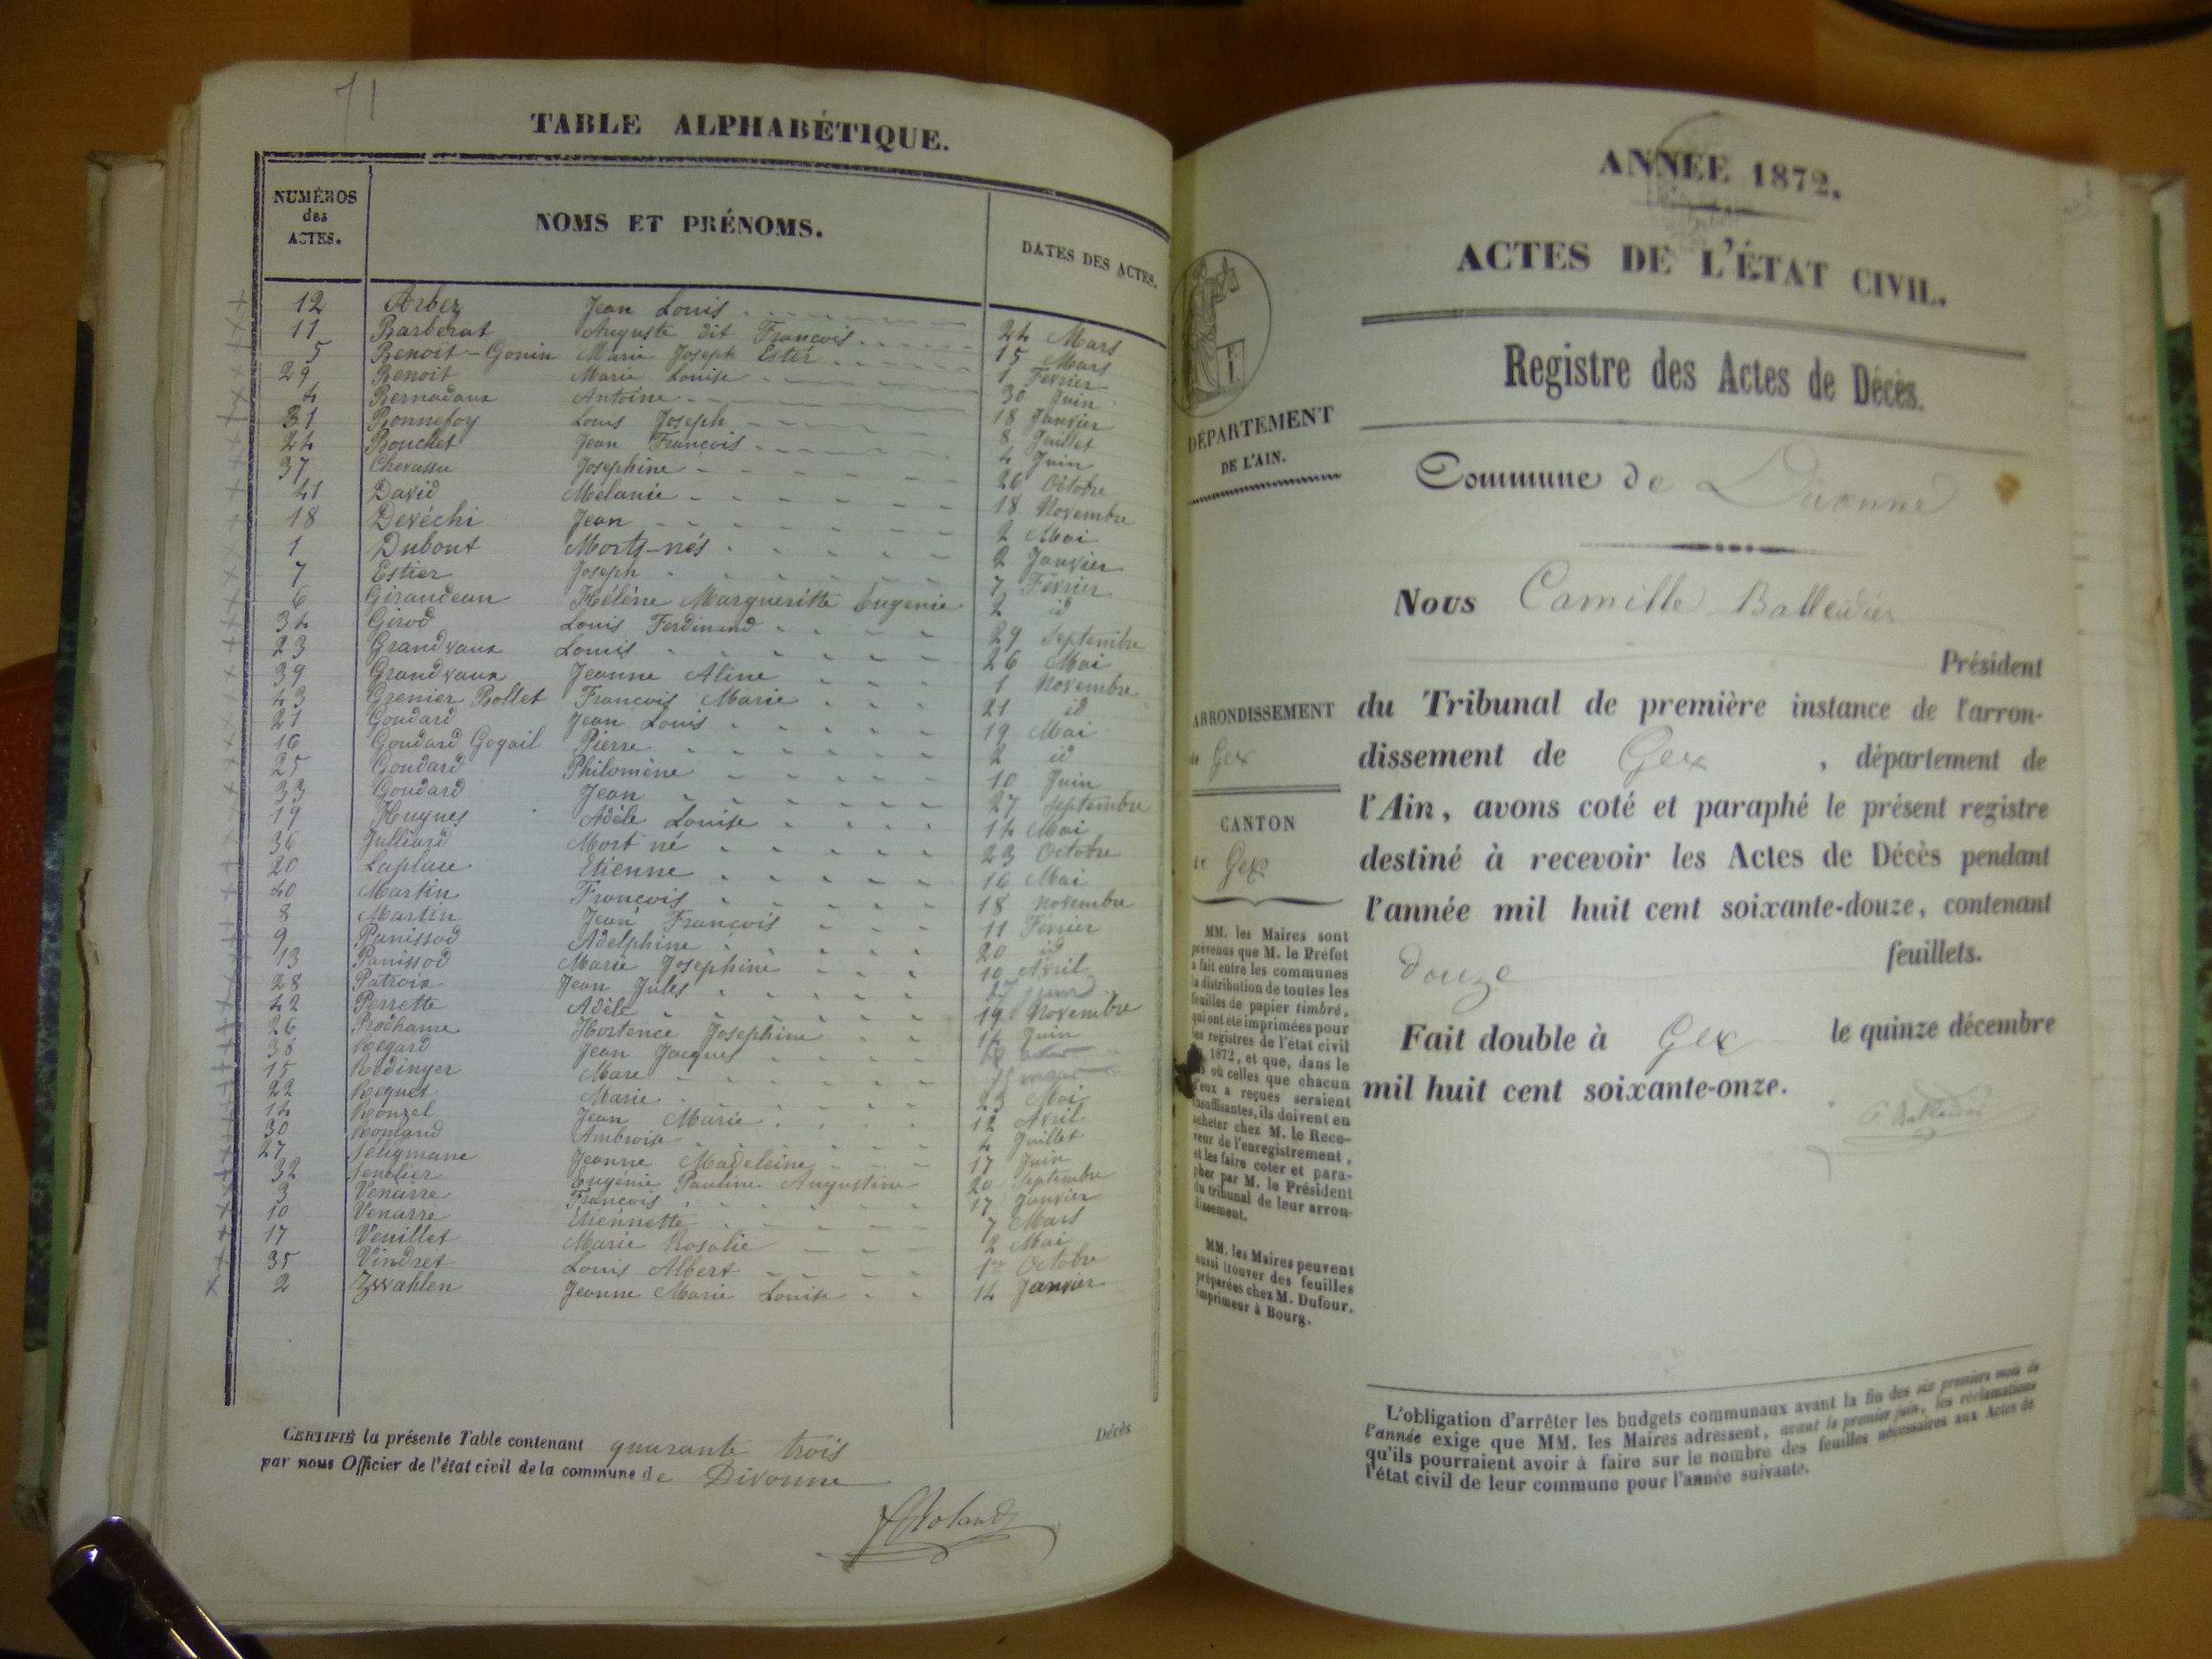 71
TABLE ALPHABÉTIQUE.
NUMÉROS des ACTES. NOMS ET PRÉNOMS. DATES DES ACTES.
12 Arbez Jean Louis 24 Mars
11 Barberat Auguste dit François 15 Mars
5 Benoit-Gonin Marie Joseph Ester 1 Février
29 Benoit Marie Louise 30 Juin
4 Bernadaux Antoine 18 Janvier
31 Bonnefoy Louis Joseph 8 Juillet
24 Bouchet Jean François 4 Juin
37 Chevassu Josephine 26 Octobre
41 David Mélanie 18 Novembre
18 Devéchi Jean 2 Mai
1 Dubout Morts-nés 2 Janvier
7 Estier Joseph 7 Février
6 Giraudeau Hélène Margueritte Eugenie 2 id
34 Girod Louis Ferdinand 29 Septembre
23 Grandvaux Louis 26 Mai
39 Grandvaux Jeanne Aline 1 Novembre
43 Grenier Rollet François Marie 21 id
21 Goudard Jean Louis 19 Mai
16 Goudard Gogail Pierre 2 id
25 Goudard Philomène 10 Juin
33 Goudard Jean 27 Septembre
19 Hugues Adèle Louise 14 Mai
36 Julliard Mort né 23 Octobre
20 Laplace Etienne 16 Mai
40 Martin François 18 Novembre
8 Martin Jean François 11 Février
9 Panissod Adelphine 20 id
13 Panissod Marie Josephine 10 Avril
28 Patroix Jean Jules 27
42 Perrette Adèle 19 Novembre
26 Prodhame Hortence Josephine 14 Juin
38 Regard Jean Jacques
15 Redinger Marc
22 Reques Marie 23 Mai
14 Ronzel Jean Marie 12 Avril
30 Romand Ambroise 4 Juillet
27 Séligmane Jeanne Madeleine 17 Juin
32 Senelier Eugénie Pauline Augustine 20 Septembre
3 Venarre François 17 Janvier
10 Venarre Etiennette 7 Mars
17 Veuillet Marie Rosalie 2 Mai
35 Vindret Louis Albert 1er Octobre
2 Zwahlen Jeanne Marie Louise 14 Janvier
CERTIFIÉ la présente Table contenant quarante trois Décès
par nous Officier de l'état civil de la commune de Divonne
ANNÉE 1872.
ACTES DE L'ÉTAT CIVIL.
Registre des Actes de Décès.
DÉPARTEMENT
DE L'AIN.
Commune de Divonne
Nous Camille Balleidier
Président
du Tribunal de première instance de l'arron-
dissement de Gex, département de
l'Ain, avons coté et paraphé le présent registre
destiné à recevoir les Actes de Décès pendant
l'année mil huit cent soixante-douze, contenant
douze feuillets.
Fait double à Gex le quinze décembre
mil huit cent soixante-onze.
ARRONDISSEMENT
de Gex
CANTON
de Gex
MM. les Maires sont
prévenus que M. le Préfet
a fait entre les communes
la distribution de toutes les
feuilles de papier timbré,
qui ont été imprimées pour
les registres de l'état civil
1872, et que, dans le
où celles que chacun
d'eux a reçues seraient
insuffisantes, ils doivent en
acheter chez M. le Rece-
veur de l'enregistrement,
et les faire coter et para-
pher par M. le Président
du tribunal de leur arron-
dissement.
MM. les Maires peuvent
aussi trouver des feuilles
préparées chez M. Dufour,
imprimeur à Bourg.
L'obligation d'arrêter les budgets communaux avant la fin des six premiers mois de
l'année exige que MM. les Maires adressent, avant le premier juin, les réclamations
qu'ils pourraient avoir à faire sur le nombre des feuilles nécessaires aux Actes de
l'état civil de leur commune pour l'année suivante.